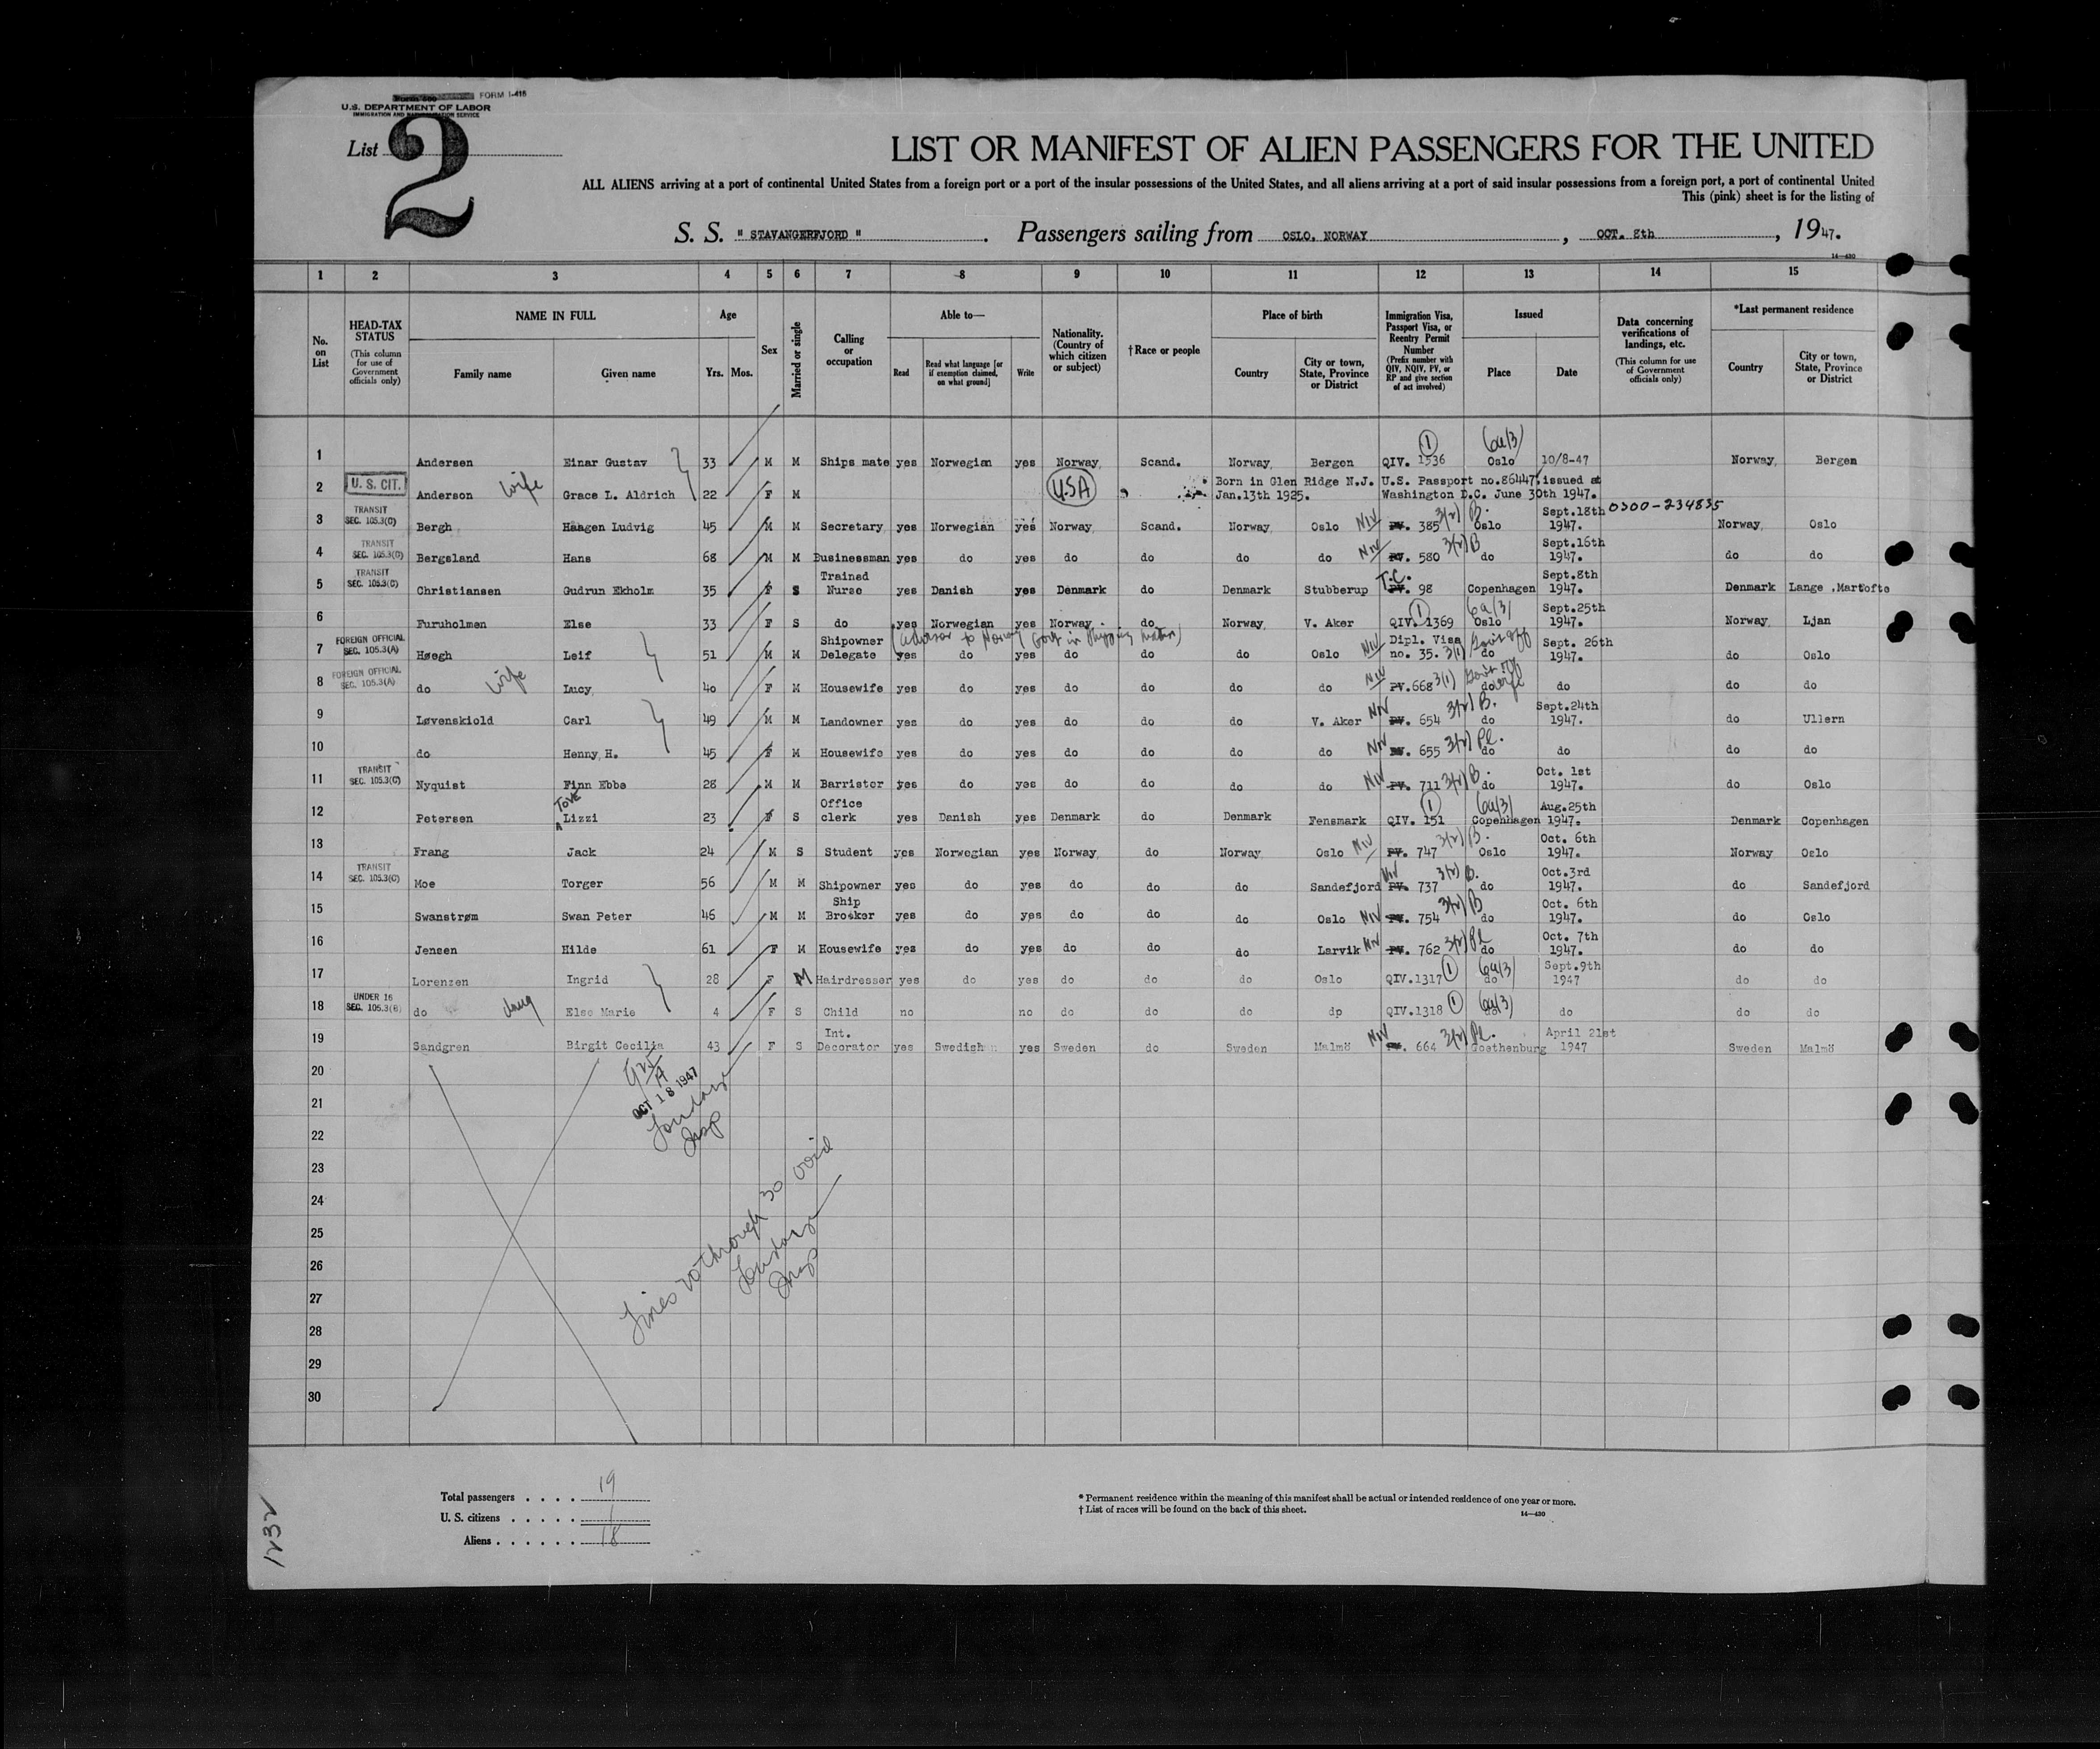 Form 500 FORM I-415
U.S. DEPARTMENT OF LABOR
IMMIGRATION AND NATURALIZATION SERVICE
List 2
LIST OR MANIFEST OF ALIEN PASSENGERS FOR THE UNITED
ALL ALIENS arriving at a port of continental United States from a foreign port or a port of the insular possessions of the United States, and all aliens arriving at a port of said insular possessions from a foreign port, a port of continental United
This (pink) sheet is for the listing of
S. S. " STAVANGERFJORD ". Passengers sailing from OSLO, NORWAY, OCT. 8th, 1947.
14—430
1 2 3 4 5 6 7 8 9 10 11 12 13 14 15
No. on List
HEAD-TAX STATUS (This column for use of Government officials only)
NAME IN FULL Family name Given name
Age Yrs. Mos.
Sex
Married or single
Calling or occupation
Able to— Read Read what language [or if exemption claimed, on what ground] Write
Nationality. (Country of which citizen or subject)
†Race or people
Place of birth Country City or town, State, Province or District
Immigration Visa, Passport Visa, or Reentry Permit Number (Prefix number with QIV, NQIV, PV, or RP and give section of act involved)
Issued Place Date
Data concerning verifications of landings, etc. (This column for use of Government officials only)
*Last permanent residence Country City or town, State, Province or District
1 Andersen Einar Gustav 33 M M Ships mate yes Norwegian yes Norway Scand. Norway Bergen QIV. 1536 (1) 6a(3) Oslo 10/8-47 Norway Bergen
2 U. S. CIT. Anderson wife Grace L. Aldrich 22 F M USA Born in Glen Ridge N.J. Jan.13th 1925. U.S. Passport no.86447, issued at Washington D.C. June 30th 1947.
3 TRANSIT SEC. 105.3(C) Bergh Haagen Ludvig 45 M M Secretary yes Norwegian yes Norway Scand. Norway Oslo NIV PV. 385 3(2) B. Oslo Sept.18th 1947. 0300-234835 Norway Oslo
4 TRANSIT SEC. 105.3(C) Bergsland Hans 68 M M Businessman yes do yes do do do do NIV PV. 580 3(2) B do Sept.16th 1947. do do
5 TRANSIT SEC. 105.3(C) Christiansen Gudrun Ekholm 35 F S Trained Nurse yes Danish yes Denmark do Denmark Stubberup T.C. PV. 98 Copenhagen Sept.8th 1947. Denmark Lange ,Martofte
6 Furuholmen Else 33 F S do yes Norwegian yes Norway do Norway V. Aker QIV. 1369 (1) 6a(3) Oslo Sept.25th 1947. Norway Ljan
7 FOREIGN OFFICIAL SEC. 105.3(A) Høegh Leif 51 M M Shipowner Delegate (Advisor to Norway Govt in Shipping matters) yes do yes do do do Oslo NIV Dipl. Visa no. 35. 3(1) Govt off do Sept. 26th 1947. do Oslo
8 FOREIGN OFFICIAL SEC. 105.3(A) do wife Lucy 40 F M Housewife yes do yes do do do do NIV PV.668 3(1) Govt off wife do do do do
9 Løvenskiold Carl 49 M M Landowner yes do yes do do do V. Aker NIV PV. 654 3(2) B. do Sept.24th 1947. do Ullern
10 do Henny H. 45 F M Housewife yes do yes do do do do NIV PV. 655 3(2) Pl. do do do do
11 TRANSIT SEC. 105.3(C) Nyquist Finn Ebbe 28 M M Barrister yes do yes do do do do NIV PV. 711 3(2) B. do Oct. 1st 1947. do Oslo
12 Petersen Tove Lizzi 23 F S Office clerk yes Danish yes Denmark do Denmark Fensmark QIV. 151 (1) 6a(3) Copenhagen Aug.25th 1947. Denmark Copenhagen
13 Frang Jack 24 M S Student yes Norwegian yes Norway do Norway Oslo NIV PV. 747 3(2) B. Oslo Oct. 6th 1947. Norway Oslo
14 TRANSIT SEC. 105.3(C) Moe Torger 56 M M Shipowner yes do yes do do do Sandefjord NIV PV. 737 3(2) B. do Oct.3rd 1947. do Sandefjord
15 Swanstrøm Swan Peter 46 M M Ship Brosker yes do yes do do do Oslo NIV PV. 754 3(2) B do Oct. 6th 1947. do Oslo
16 Jensen Hilde 61 F M Housewife yes do yes do do do Larvik NIV PV. 762 3(2) Pl do Oct. 7th 1947. do do
17 Lorenzen Ingrid 28 F M Hairdresser yes do yes do do do Oslo QIV.1317 (1) 6a(3) do Sept.9th 1947 do do
18 UNDER 16 SEC. 105.3(B) do daug Else Marie 4 F S Child no no do do do dp QIV.1318 (1) 6a(3) do do do
19 Sandgren Birgit Cecilia 43 F S Int. Decorator yes Swedish yes Sweden do Sweden Malmö NIV PV. 664 3(2) Pl. Goethenburg April 21st 1947 Sweden Malmö
20
OCT 18 1947
21
Insp
22
23
24
Lines 20 through 30 void
25
26
Insp
27
28
29
30
Total passengers . . . . 19
U. S. citizens . . . . . 1
Aliens . . . . . . 18
* Permanent residence within the meaning of this manifest shall be actual or intended residence of one year or more.
† List of races will be found on the back of this sheet.
14—430
1232